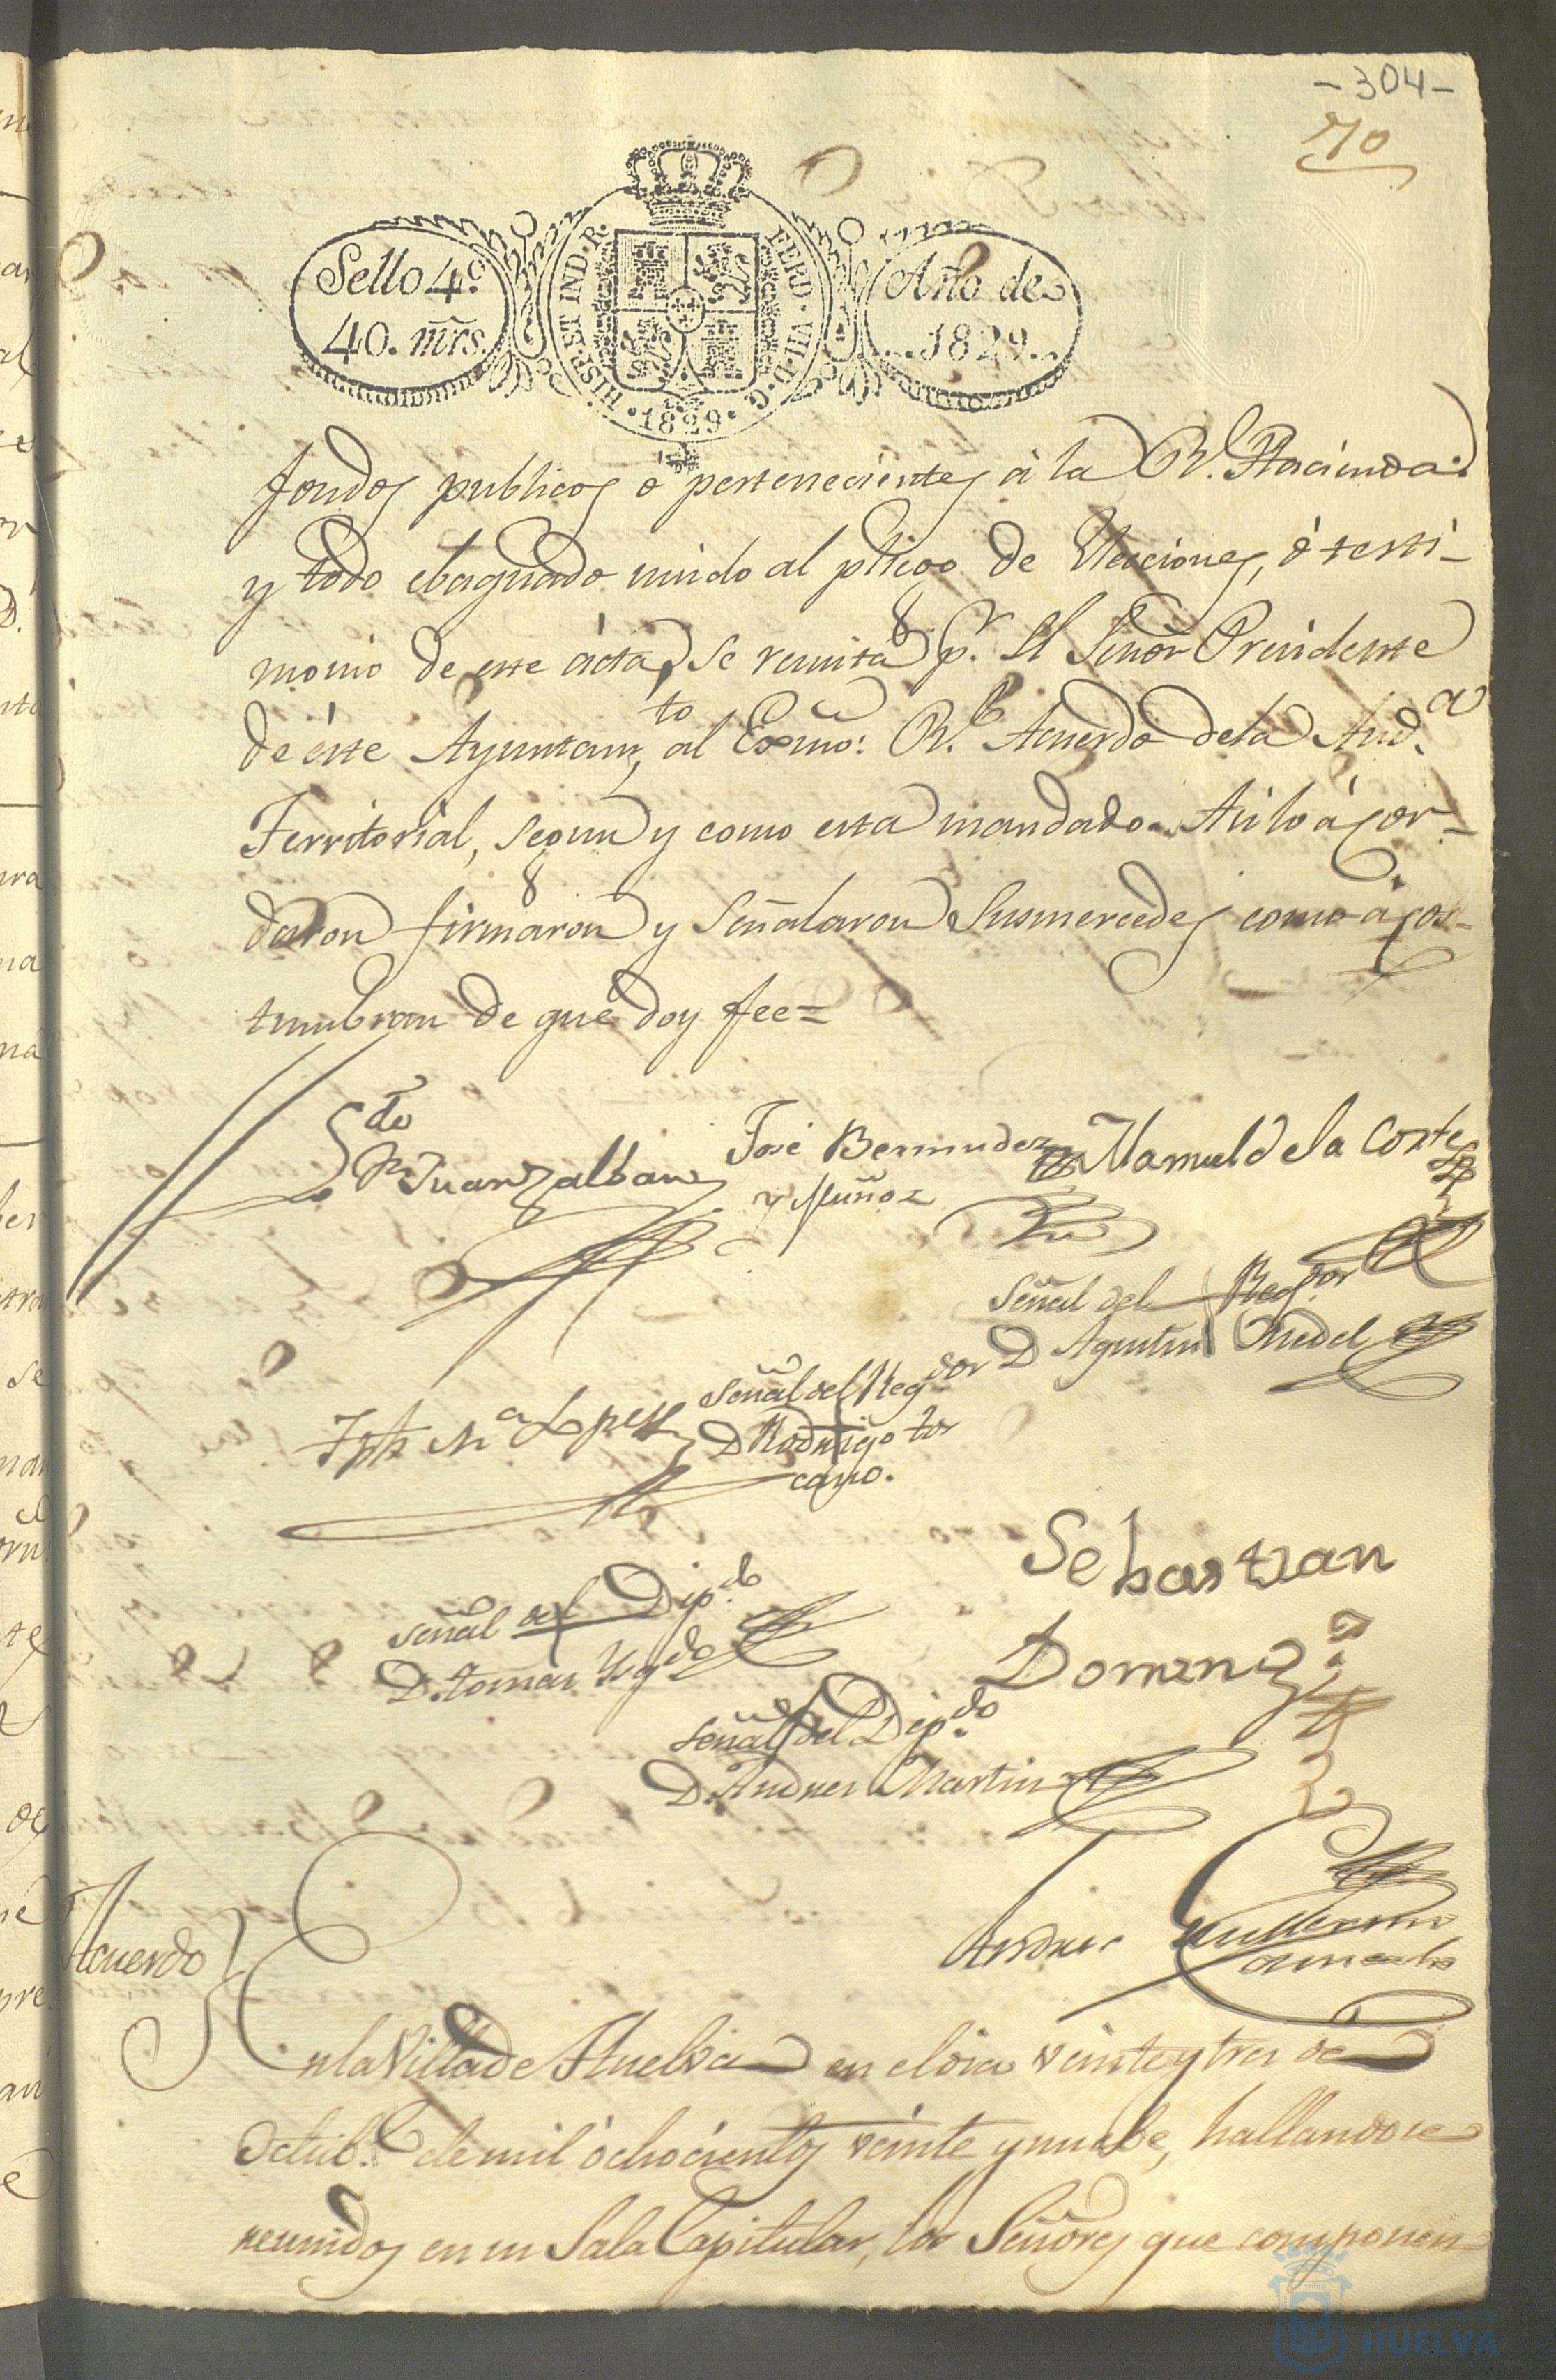 -304-
70
Sello 4º.
40. mrs.
HISP. ET IND. R.
FERD. VII. D. G.
1829.
Año de
1829.
fondos publicos ó pertenecientes á la Rl. Hacienda.
y todo ebaquado unido al pliego de Elecciones, ó testi-
monio de este ácta, se remita pr. El Señor Precidente
de éste Ayuntamto, al Exmo: Rl. Acuerdo dela Auda.
Territorial, segun y como esta mandado. Asi lo ácor-
daron firmaron y señalaron Susmercedes como ácos-
tumbran de que doy fee=
Juan Zalban
José Bermudez
y Muñoz
Manuel de la Corte
Señal del Regor
D Agustin Medel
Señal del Regdor
D Rodrigo tos
cano.
Ma Lopez
Sebastian
Doming
señal del Dipdo
D. tomas
señal del Dipdo
D. Andres Martin
Andres Guillermo
Acuerdo
En la Villa de Huelva en el dia veinte y tres de
Octube. de mil óchocientos veinte y nuebe, hallandose
reunidos en su Sala Capitular, los Señores que componen
HUELVA